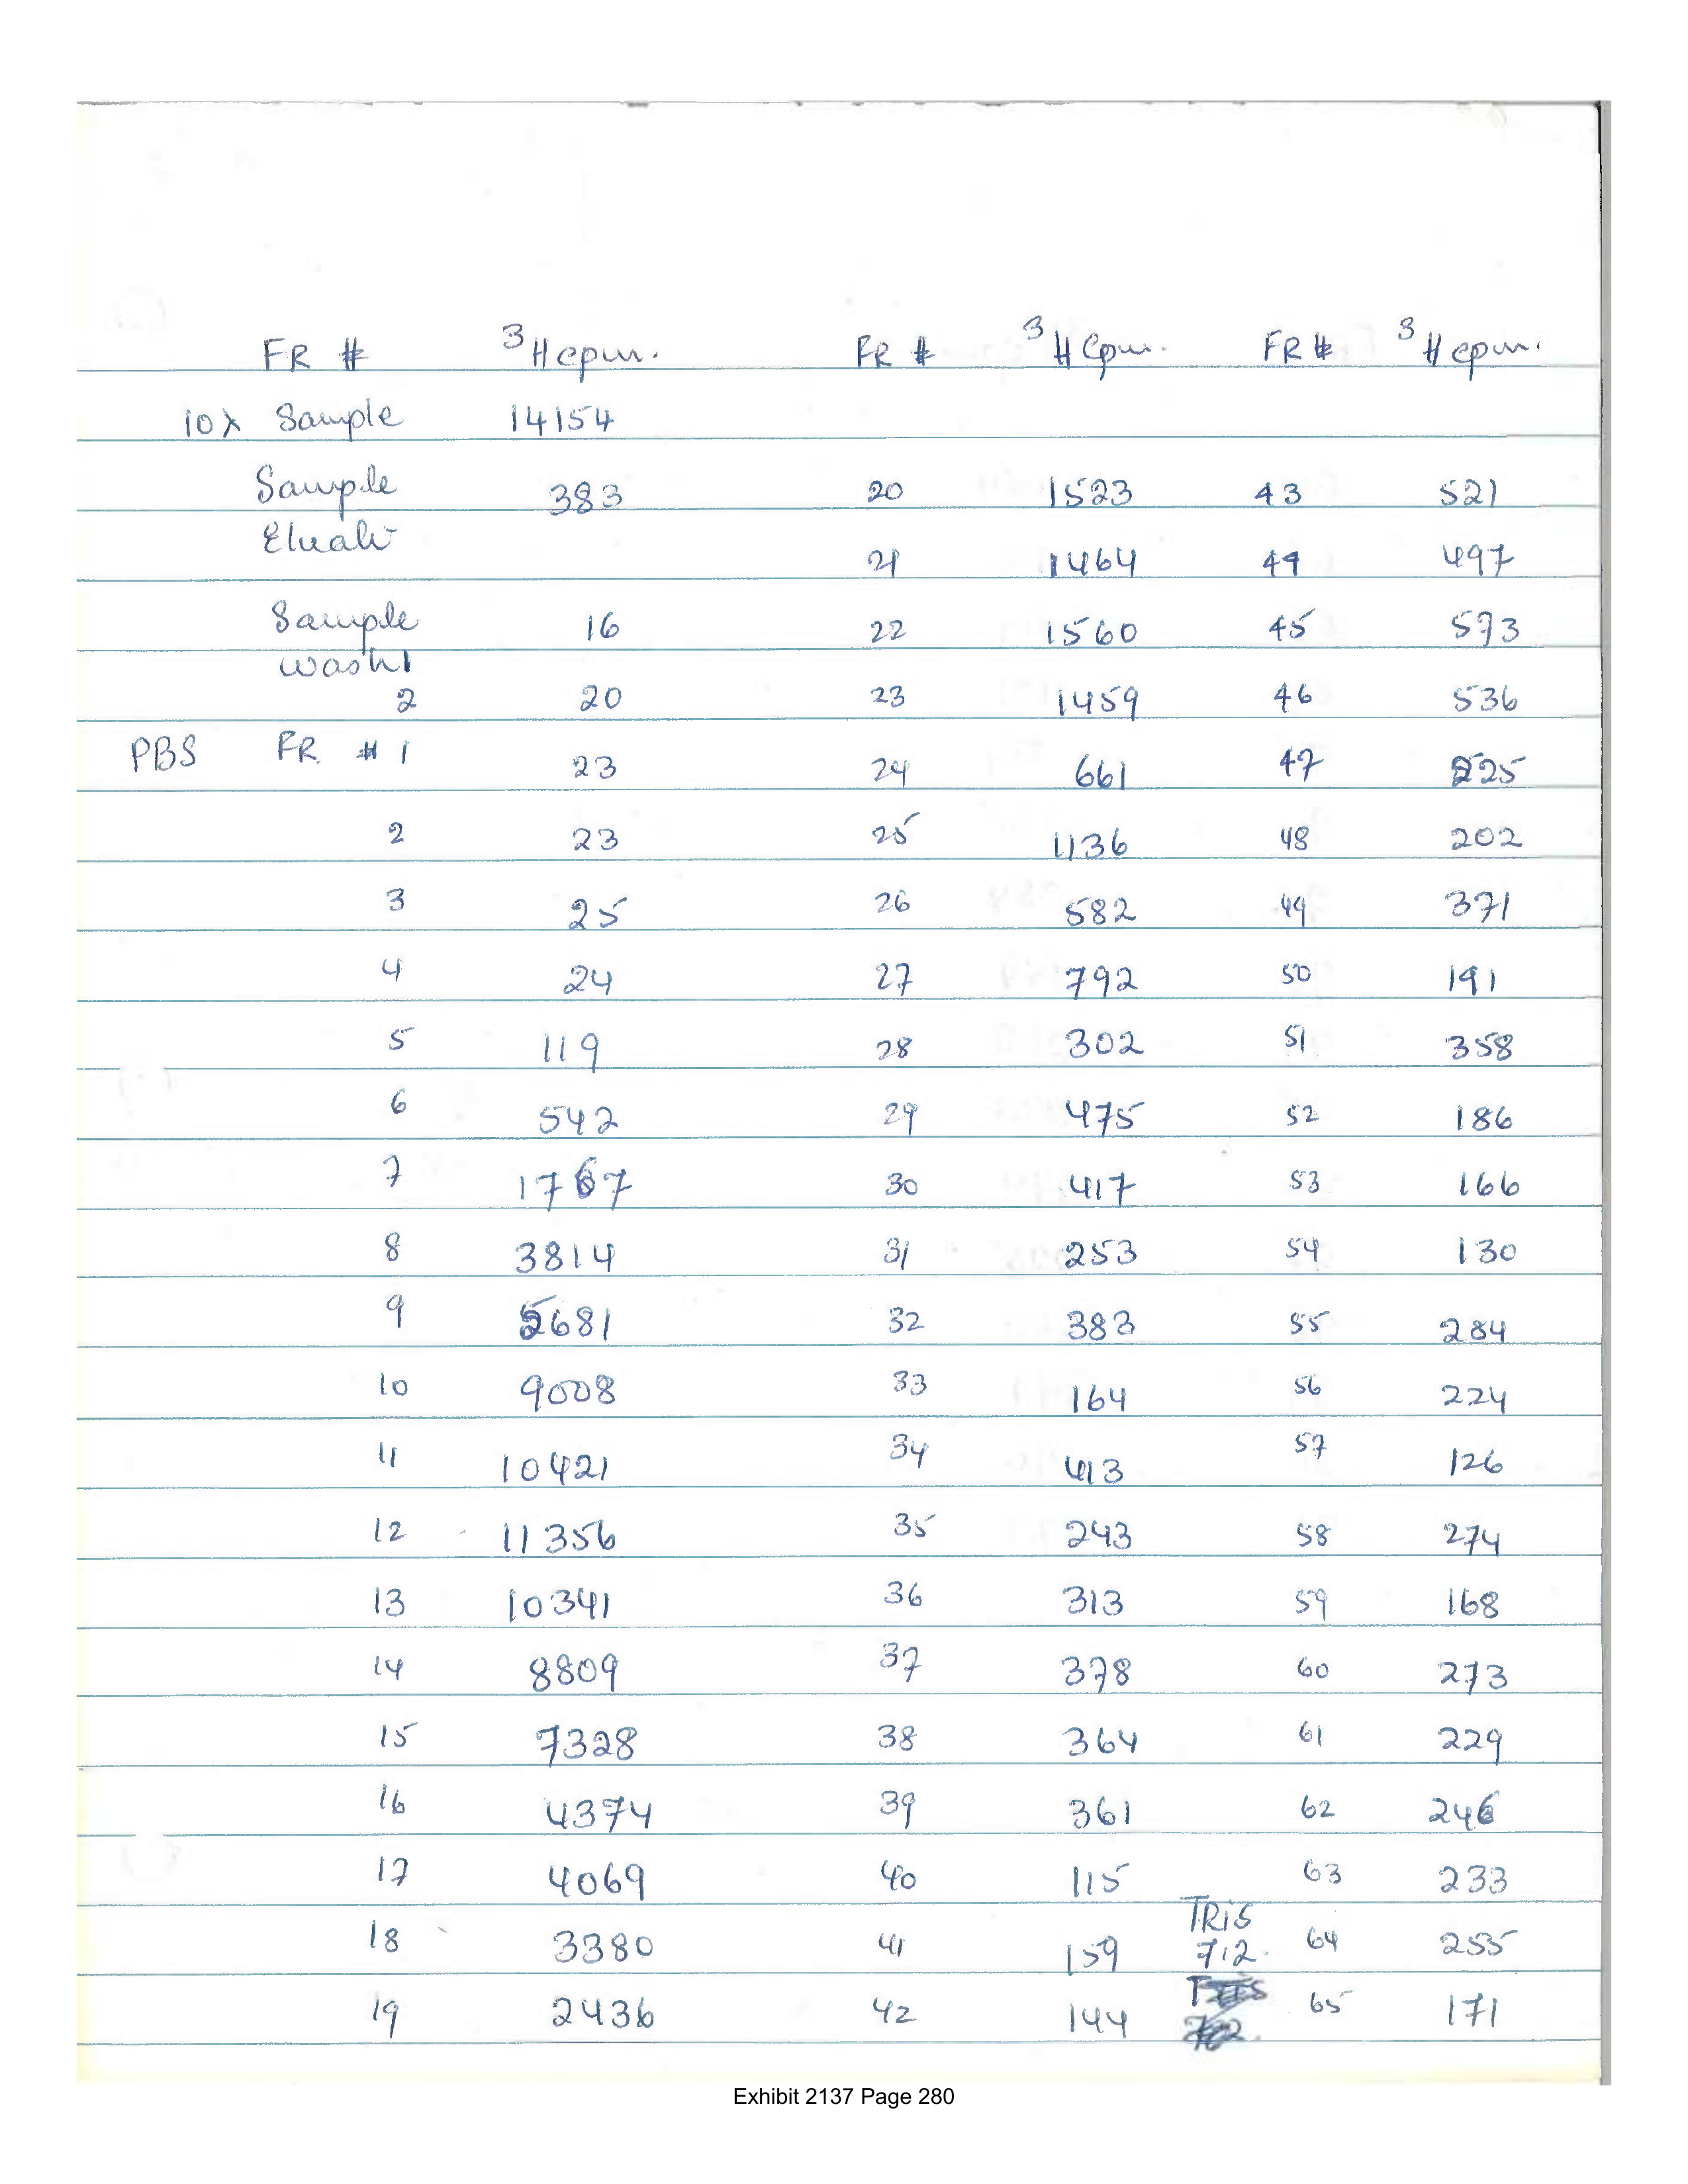 FR # ³H cpm. FR # ³H Cpm. FR # ³H cpm.
10λ Sample 14154
Sample 383 20 1523 43 521
Eluate 21 1464 44 497
Sample 16 22 1560 45 573
wash 1
2 20 23 1459 46 536
PBS FR. # 1 23 24 661 47 225
2 23 25 1136 48 202
3 25 26 582 49 371
4 24 27 792 50 191
5 119 28 302 51 358
6 542 29 475 52 186
7 1767 30 417 53 166
8 3814 31 253 54 130
9 5681 32 383 55 284
10 9008 33 164 56 224
11 10421 34 413 57 126
12 11356 35 243 58 274
13 10341 36 313 59 168
14 8809 37 378 60 273
15 7328 38 364 61 229
16 4374 39 361 62 246
17 4069 40 115 63 233
18 3380 41 159 TRIS 7.2. 64 255
19 2436 42 144 65 171
Exhibit 2137 Page 280